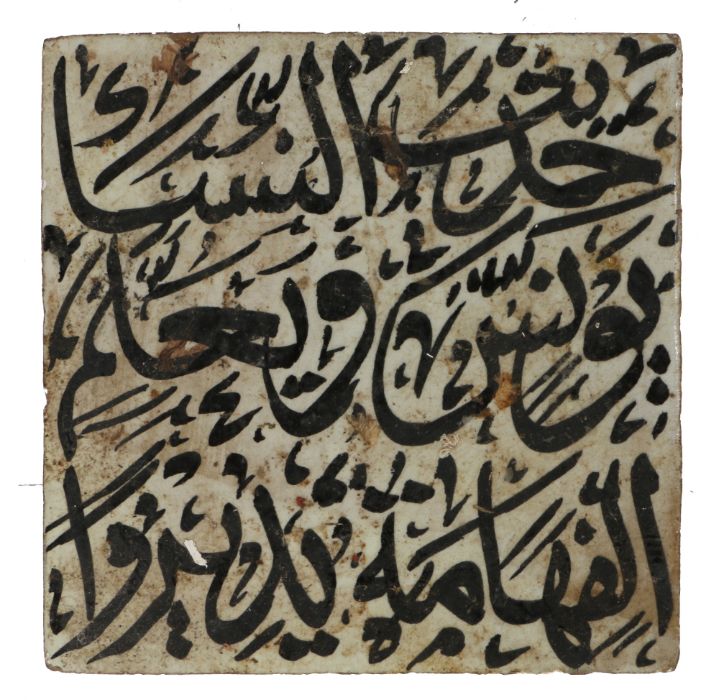 حديث النسا
يونس ويعلم
الفهامة يديروا